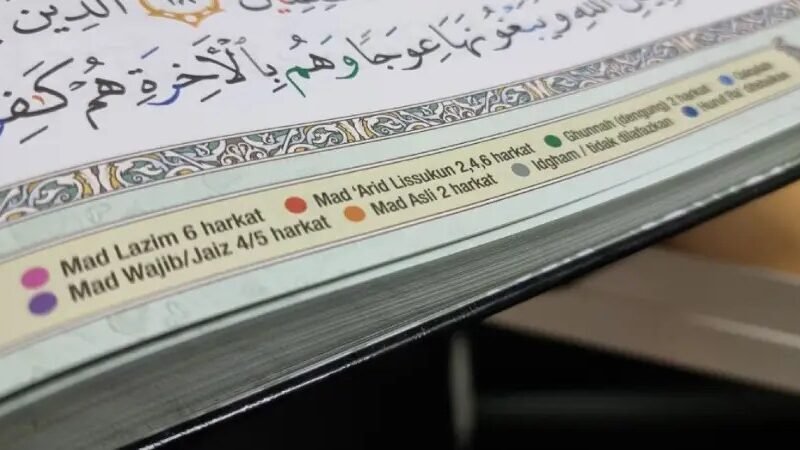 الَّذِينَ
اللَّهِ وَيَبْغُونَهَا عِوَجًا وَهُم بِالْآخِرَةِ هُمْ
Mad Lazim 6 harkat
Mad Wajib/Jaiz 4/5 harkat
Mad 'Arid Lissukun 2,4,6 harkat
Mad Asli 2 harkat
Ghunnah (dengung) 2 harkat
Idgham / tidak dilafazkan
Qalqalah